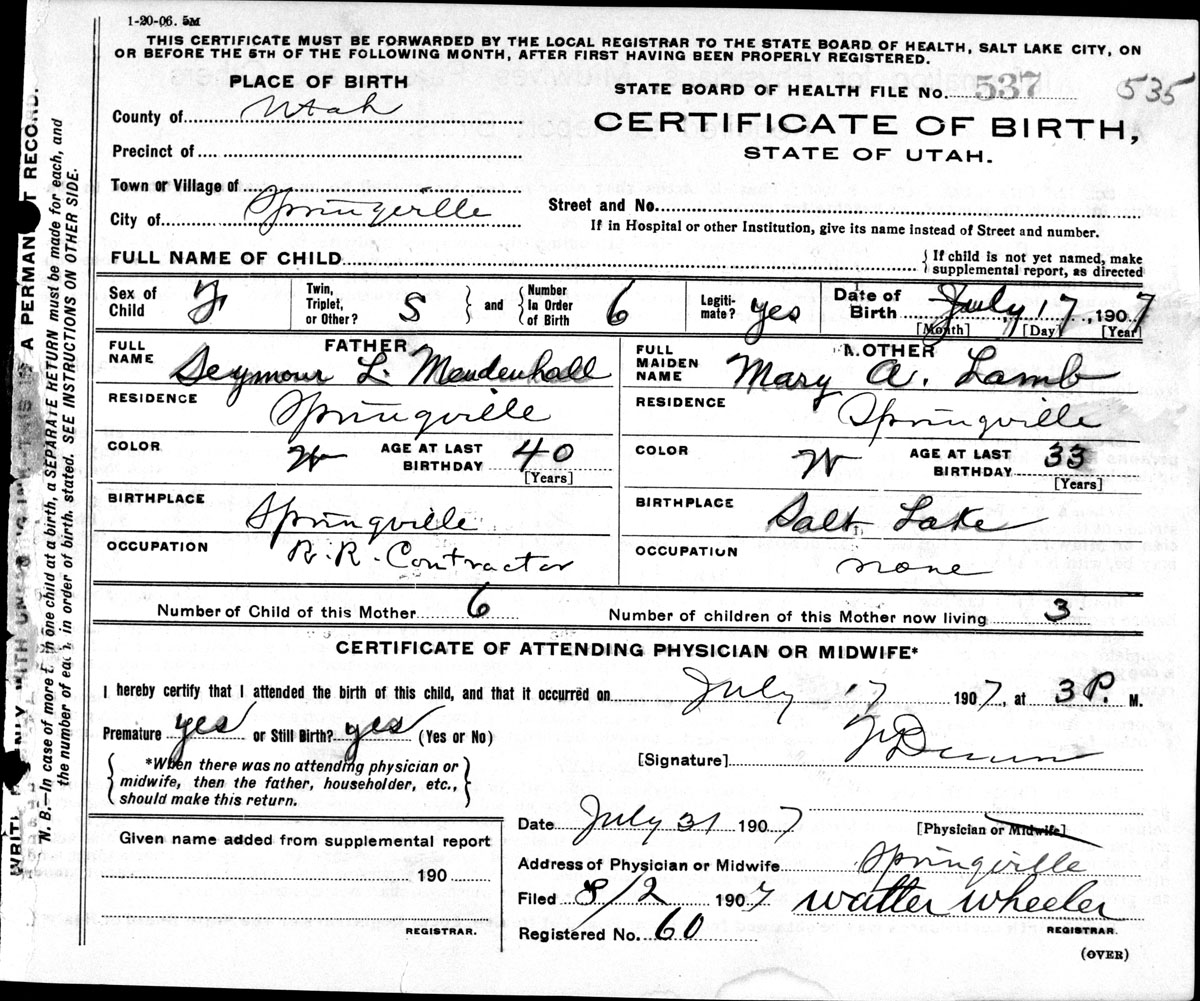 1-20-06. 5M
THIS CERTIFICATE MUST BE FORWARDED BY THE LOCAL REGISTRAR TO THE STATE BOARD OF HEALTH, SALT LAKE CITY, ON
OR BEFORE THE 5TH OF THE FOLLOWING MONTH, AFTER FIRST HAVING BEEN PROPERLY REGISTERED.
PLACE OF BIRTH
County of Utah
Precinct of
Town or Village of
City of Springville
STATE BOARD OF HEALTH FILE No. 537 535
CERTIFICATE OF BIRTH,
STATE OF UTAH.
Street and No.
If in Hospital or other Institution, give its name instead of Street and number.
FULL NAME OF CHILD { If child is not yet named, make
supplemental report, as directed
Sex of Child F Twin, Triplet, or Other? S } and { Number In Order of Birth 6 Legitimate? yes Date of Birth July 17, 1907
[Month] [Day] [Year]
FATHER
FULL NAME Seymour L. Mendenhall
RESIDENCE Springville
COLOR W AGE AT LAST BIRTHDAY 40
[Years]
BIRTHPLACE Springville
OCCUPATION R. R. Contractor
MOTHER
FULL MAIDEN NAME Mary A. Lamb
RESIDENCE Springville
COLOR W AGE AT LAST BIRTHDAY 33
[Years]
BIRTHPLACE Salt Lake
OCCUPATION none
Number of Child of this Mother 6 Number of children of this Mother now living 3
CERTIFICATE OF ATTENDING PHYSICIAN OR MIDWIFE*
I hereby certify that I attended the birth of this child, and that it occurred on July 17 1907, at 3 P. M.
Premature yes or Still Birth? yes (Yes or No)
*When there was no attending physician or
midwife, then the father, householder, etc.,
should make this return.
[Signature] Dunn
Date July 31 1907 [Physician or Midwife]
Address of Physician or Midwife Springville
Filed 8/2 1907 Walter Wheeler
Registered No. 60 REGISTRAR.
(OVER)
Given name added from supplemental report
190
REGISTRAR.
A PERMANENT RECORD.
N. B.—In case of more than one child at a birth, a SEPARATE RETURN must be made for each, and
the number of each, in order of birth, stated. SEE INSTRUCTIONS ON OTHER SIDE.